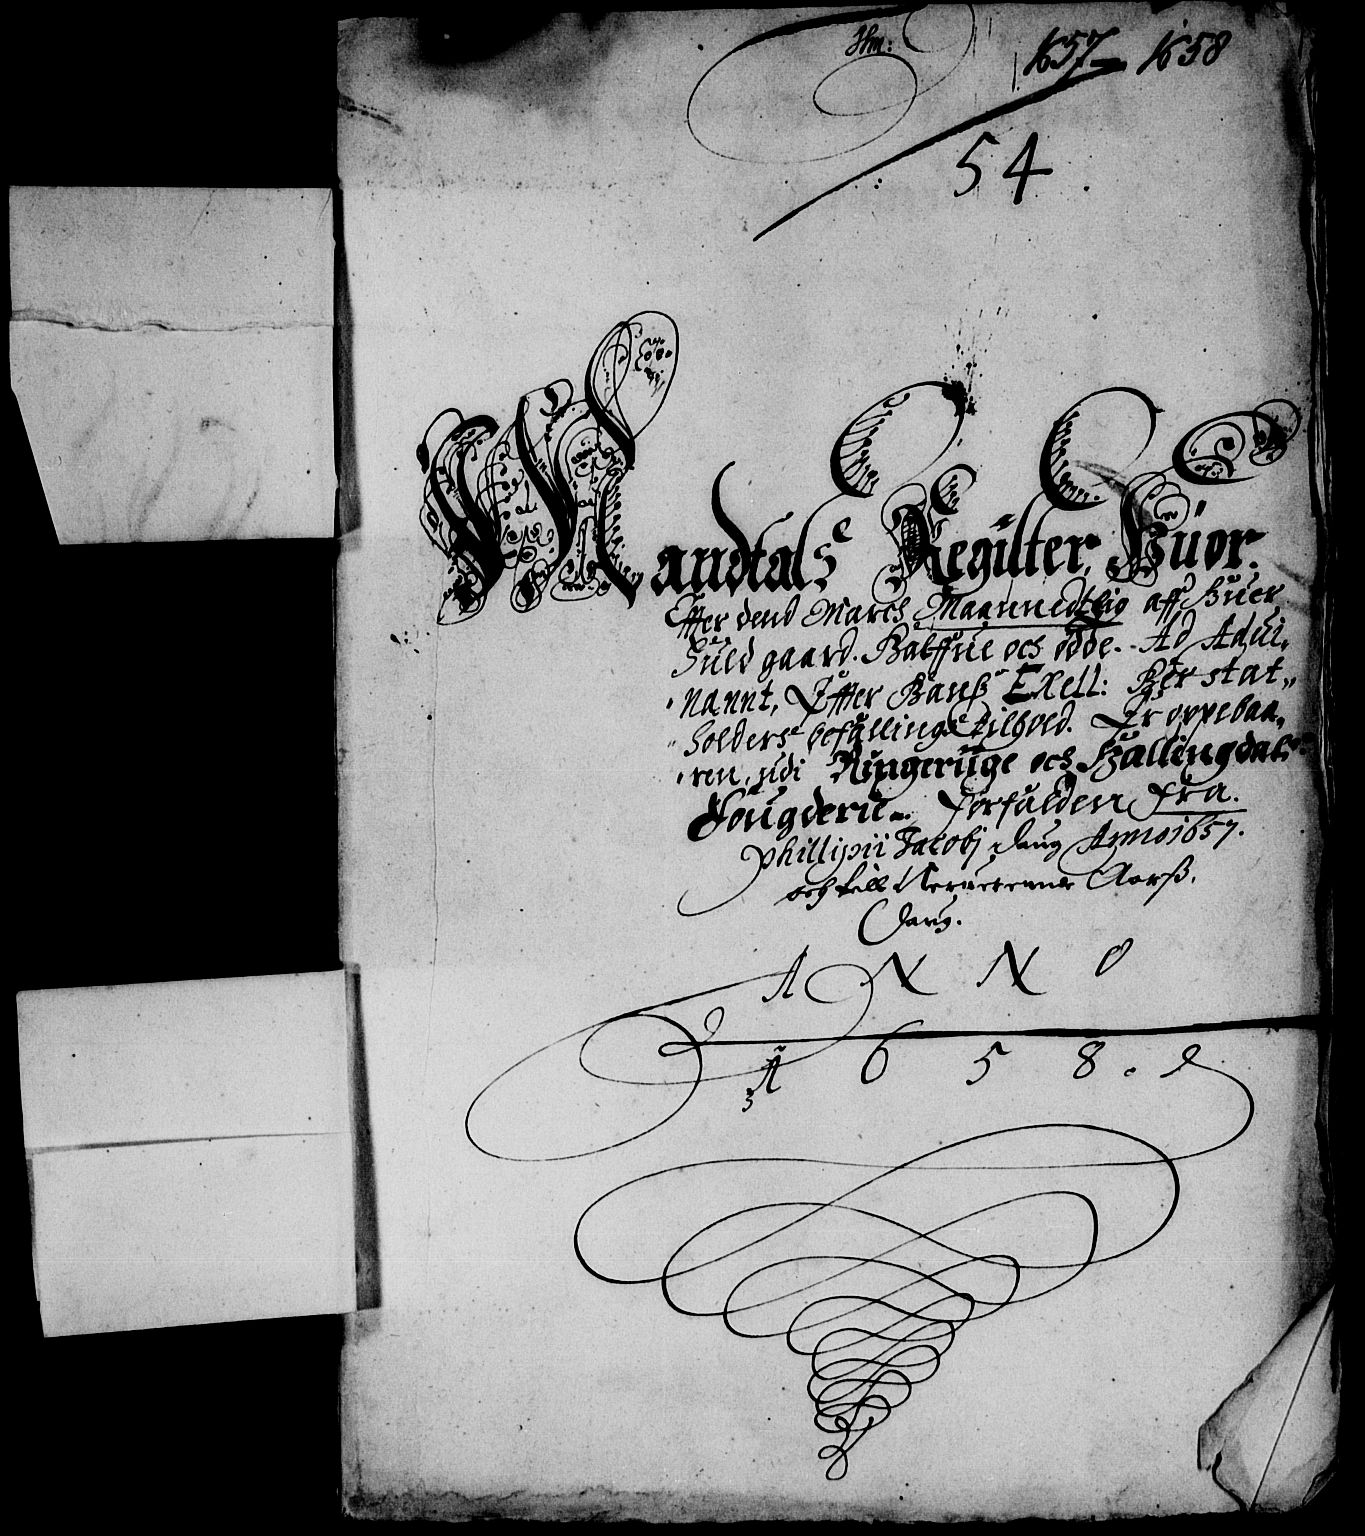 Hm:
1657 - 1658
54
Mandtals Register, Huor.
Effter dend March Maannedtlig aff Huer
Fuld gaard. Halffue och ødde. Ad Adui,
nannt, Effter Hanß Exell: Her stat,,
holderß befallings tilhold. Er oppebaa,
ren, udi Ringeriige och Hallingdals
Fougderii. Forfalden Fra.
Phillipii Jacobj daug Anno 1657.
och till Aarß,
Daug.
A N N O
1 6 5 8.